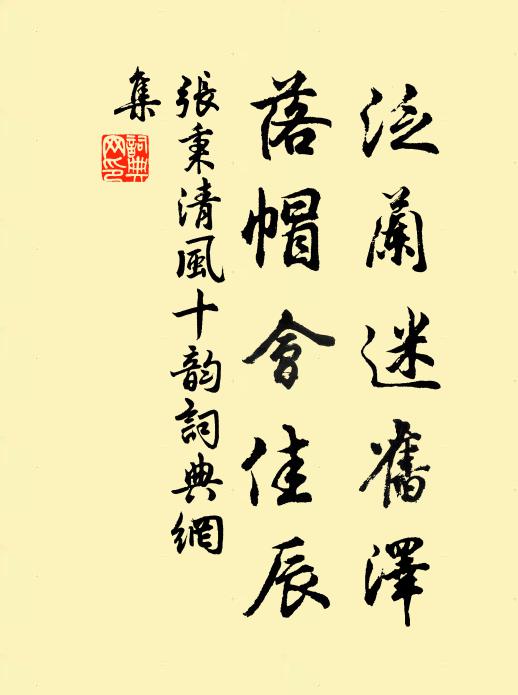 泛蘭迷舊澤
落帽會佳辰
張秉清風十韵詞典網
集
詞典
网印